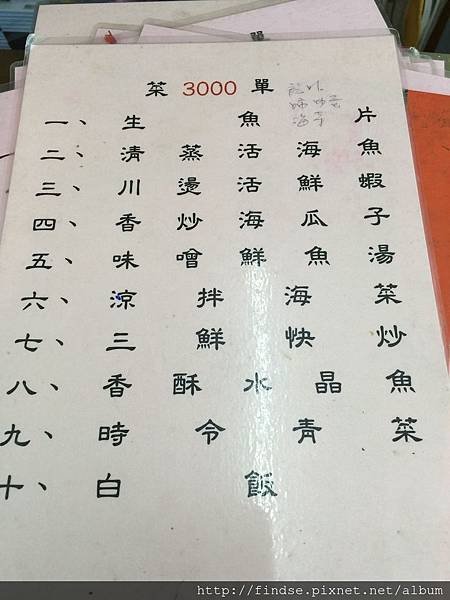 單
菜 3000 單
一、生魚片
二、清蒸活海魚
三、川燙活鮮蝦
四、香炒海瓜子
五、味噌鮮魚湯
六、涼拌海菜
七、三鮮快炒
八、香酥水晶魚
九、時令青菜
十、白飯
http://findse.pixnet.net/album